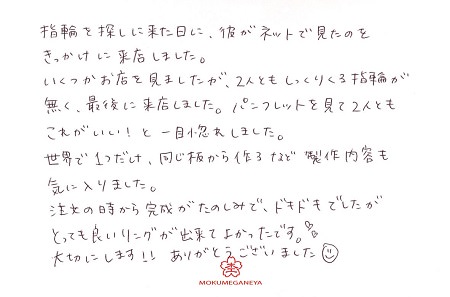 指輪を探しに来た日に、彼がネットで見たのを
きっかけに来店しました。
いくつかお店を見ましたが、2人ともしっくりくる指輪が
無く、最後に来店しました。パンフレットを見て2人とも
これがいい！と一目惚れしました。
世界で1つだけ、同じ板から作るなど製作内容も
気に入りました。
注文の時から完成がたのしみで、ドキドキでしたが
とっても良いリングが出来てよかったです。
大切にします!! ありがとうございました
MOKUMEGANEYA